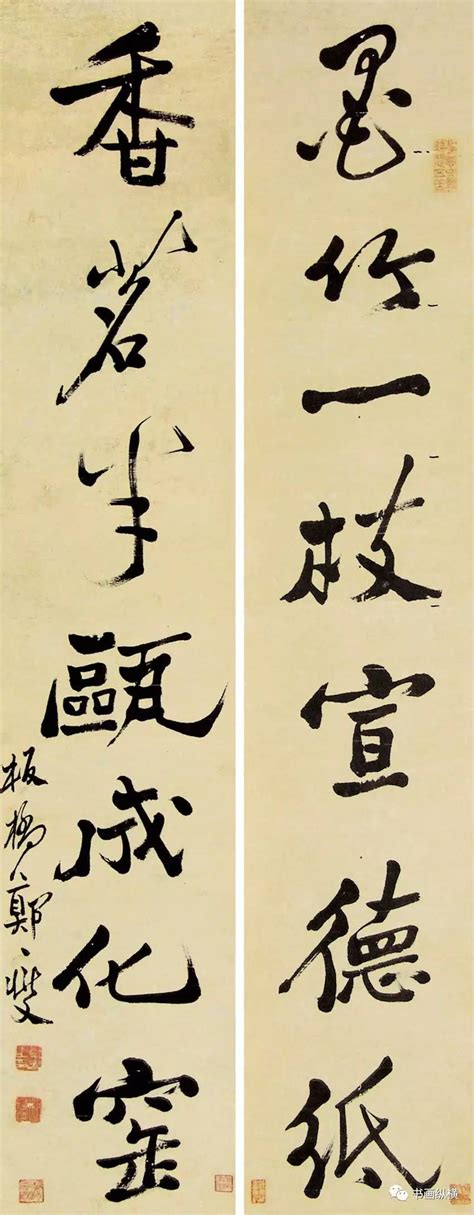 墨竹一枝宣德纸
香茗半甌成化窑
板橋鄭燮
书画纵横